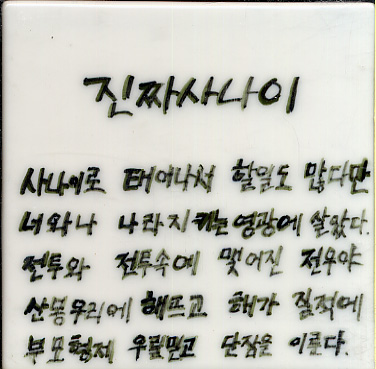 진짜사나이
사나이로 태어나서 할일도 많다만
너와나 나라지키는 영광에 살았다.
전투와 전투속에 맺어진 전우야
산봉우리에 해뜨고 해가 질적에
부모형제 우릴믿고 단잠을 이룬다.